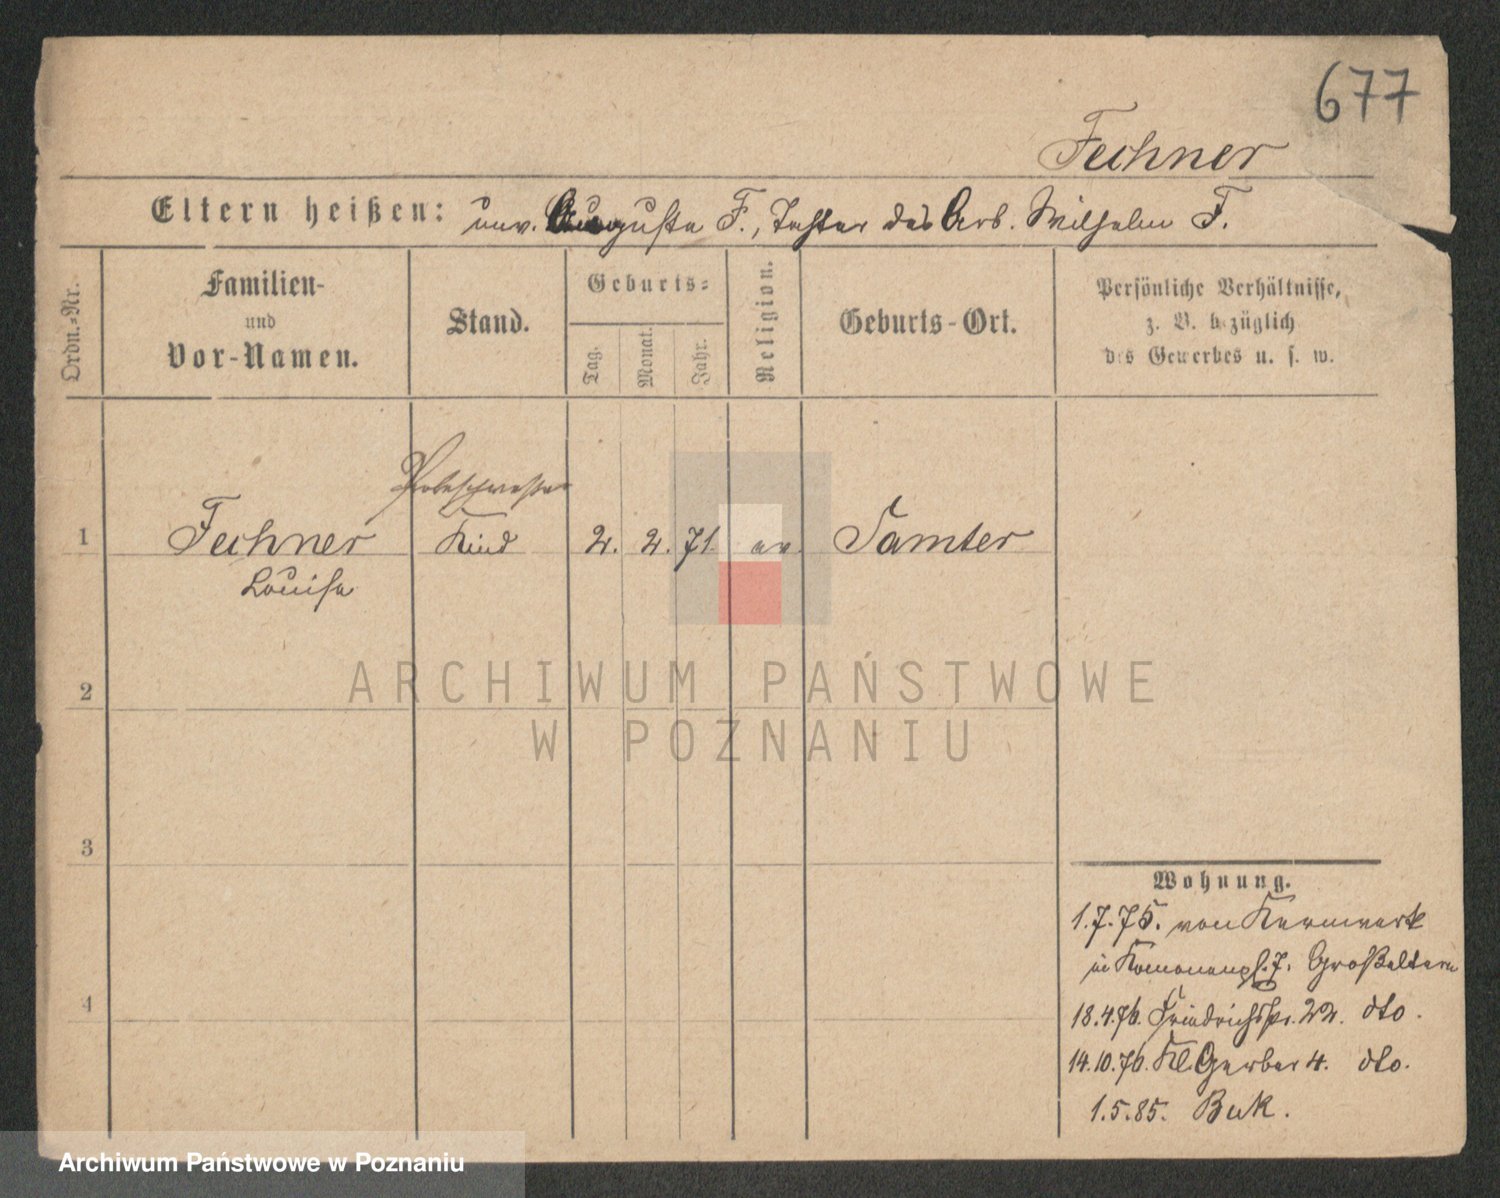 677
Fechner
Eltern heißen: unv. Auguste F., Tochter des Arb. Wilhelm F.
Ordn.-Nr.
Familien-
und
Vor-Namen.
Stand.
Geburts-
Tag.
Monat.
Jahr.
Religion.
Geburts-Ort.
Persönliche Verhältnisse,
z. B. bezüglich
des Gewerbes u. s. w.
Probeschwester
1 Fechner Kind 2. 2. 71. ev Samter
Louise
2
3
4
Wohnung.
1.7.75. von Kernwerk
in 7. Großeltern
18.4.76. Friedrichstr. 22. dto.
14.10.76. Kl. Gerber 4. dto.
1.5.85. Buk.
ARCHIWUM PAŃSTWOWE
W POZNANIU
Archiwum Państwowe w Poznaniu